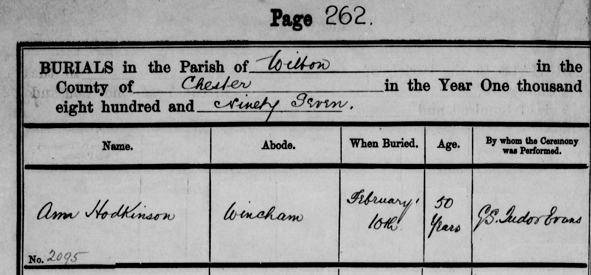 Page 262.
BURIALS in the Parish of Witton in the
County of Chester in the Year One thousand
eight hundred and Ninety Seven.
Name. Abode. When Buried. Age. By whom the Ceremony was Performed.
Ann Hodkinson Wincham February 10th. 50 Years G.S. Tudor Evans
No. 2095